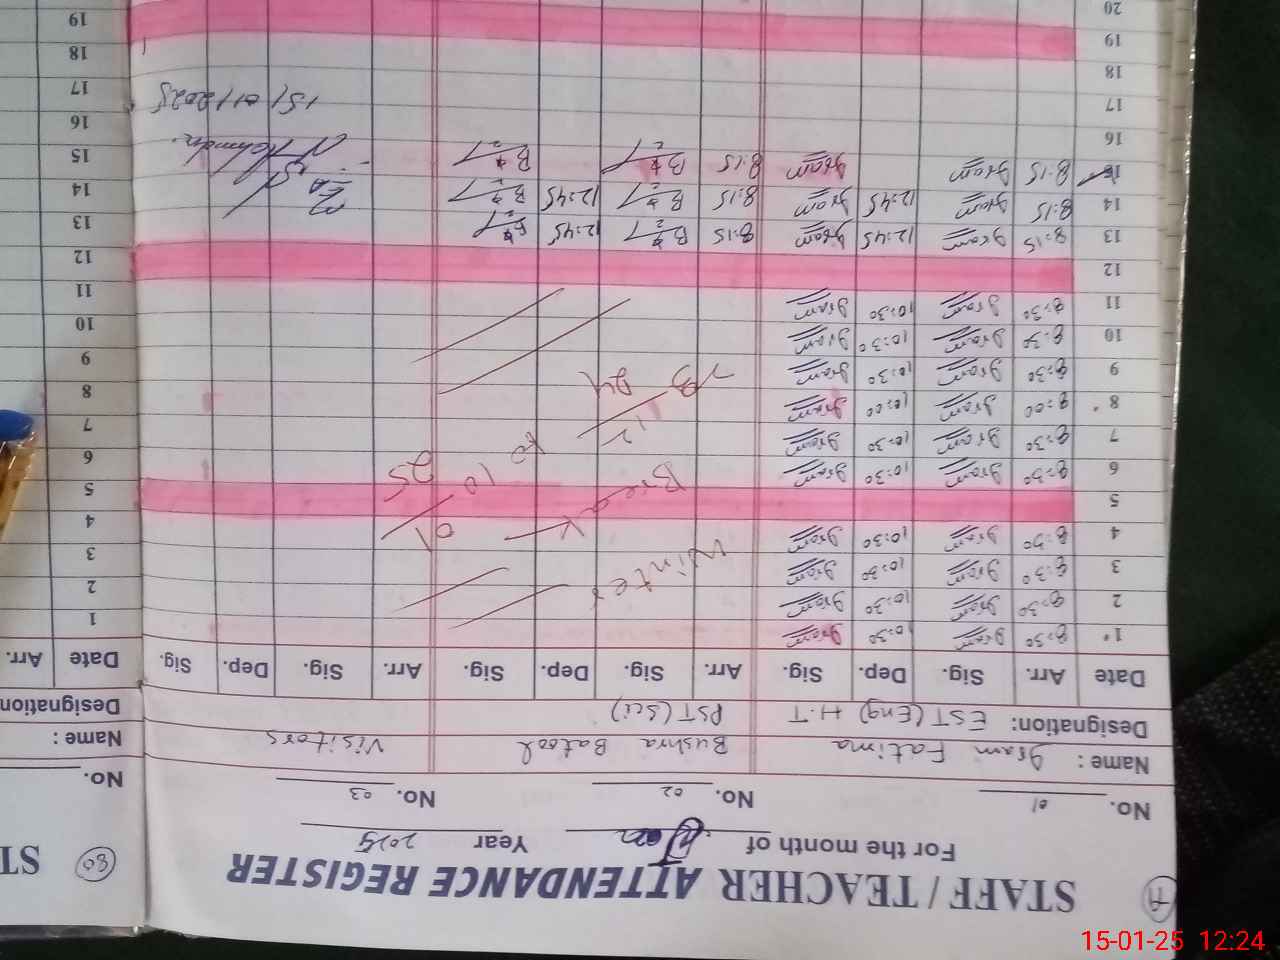 STAFF / TEACHER ATTENDANCE REGISTER
For the month of Jan Year 2025
No. 01 No. 02 No. 03
Name: Iram Fatima Bushra Batool Visitors
Designation: EST (Eng) H.T PST (Sci)
Date Arr. Sig. Dep. Sig. Arr. Sig. Dep. Sig. Arr. Sig. Dep. Sig.
1 8:30 Iram 10:30 Iram
2 8:30 Iram 10:30 Iram
3 8:30 Iram 10:30 Iram
4 8:30 Iram 10:30 Iram
5
6 8:30 Iram 10:30 Iram
7 8:30 Iram 10:30 Iram
8 8:00 Iram 10:00 Iram
9 8:30 Iram 10:30 Iram
10 8:30 Iram 10:30 Iram
11 8:30 Iram 10:30 Iram
Winter
Break
23/12/24 to 10/01/25
12
13 8:15 Iram 12:45 Iram 8:15 12:45
14 8:15 Iram 12:45 Iram 8:15 12:45
15 8:15 Iram Iram 8:15
15/01/2025
16
17
18
19
20
80
ST
No.
Name :
Designation
Date Arr.
1
2
3
4
5
6
7
8
9
10
11
12
13
14
15
16
17
18
19
15-01-25 12:24